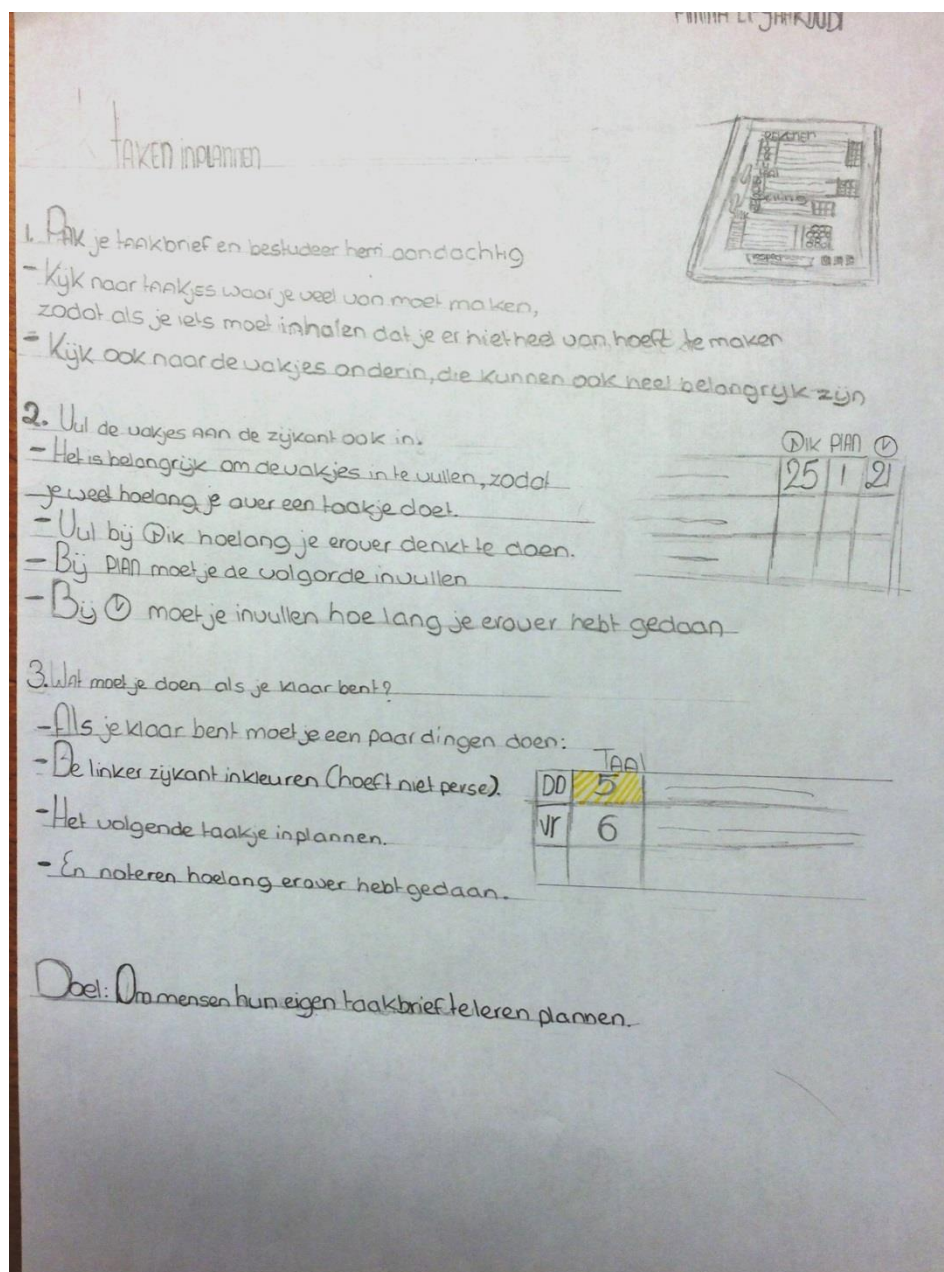 TAKEN INPLANNEN
REKENEN
TAAL
1. PAK je taakbrief en bestudeer hem aandachtig
- Kijk naar taakjes waar je veel van moet maken,
zodat als je iets moet inhalen dat je er niet heel van hoeft te maken
- Kijk ook naar de vakjes onderin, die kunnen ook heel belangrijk zijn
2. Vul de vakjes AAN de zijkant ook in.
- Het is belangrijk om de vakjes in te vullen, zodat
je weet hoelang je over een taakje doet.
- Vul bij Dik hoelang je erover denkt te doen.
- Bij PlAN moet je de volgorde invullen
- Bij moet je invullen hoe lang je erover hebt gedaan
DIK PlAN
25 1 21
3. WAt moet je doen als je klaar bent?
- Als je klaar bent moet je een paar dingen doen:
- De linker zijkant inkleuren (hoeft niet perse).
- Het volgende taakje inplannen.
- En noteren hoelang erover hebt gedaan.
TAAl
DO 5
Vr 6
Doel: Om mensen hun eigen taakbrief te leren plannen.